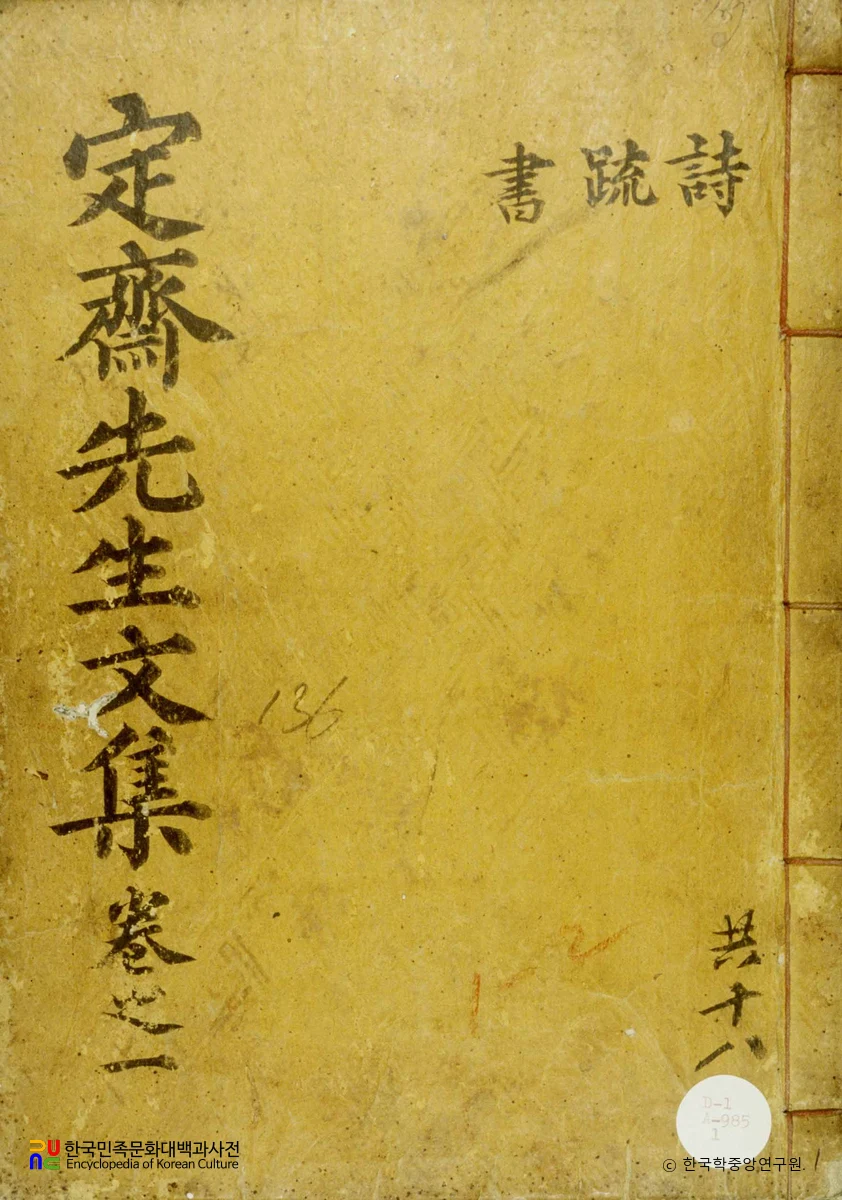 詩
疏
書
定齋先生文集 卷之一
136
1-2
共十八
D-1
A-985
1
한국민족문화대백과사전
Encyclopedia of Korean Culture
© 한국학중앙연구원